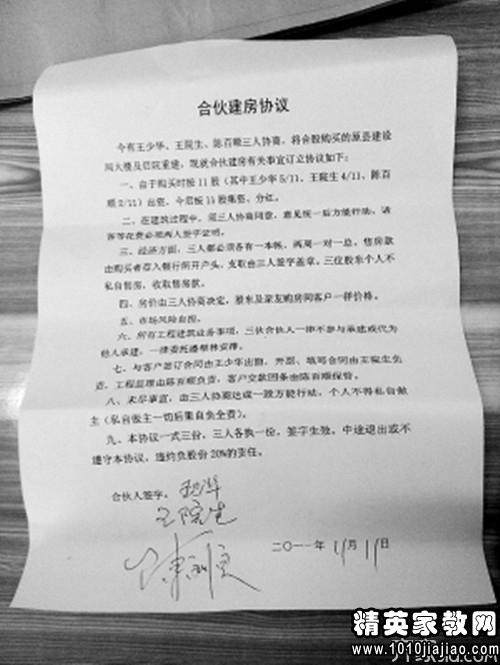 合伙建房协议
今有王少华、王院生、陈百顺三人协商，将合股购买的原县建设
局大楼及后院重建，现就合伙建房有关事宜订立协议如下：
一、自于购买时按11股（其中王少华5/11、王院生4/11、陈百
顺2/11）出资，今后按11股集资、分红。
二、在建筑过程中，须三人协商同意，意见统一后方能行动，请
客等花费必须两人签字证明。
三、经济方面，三人都必须各有一本帐，两周一对一总，售房款
由购买者存入银行所开户头，支取由三人签字盖章。三位股东个人不
私自售房，收取售房款。
四、房价由三人协商决定，股东及亲友购房同客户一样价格。
五、市场风险自担。
六、所有工程建筑业务事项，三伙合伙人一律不参与承建或代为
他人承建，一律委托潘根林安排。
七、与客户签订合同由王少华出面，开票、填写合同由王院生负
责，工程监理由陈百顺负责，客户交款回条由陈百顺保管。
八、未尽事宜，由三人协商达成一致方能行动，个人不得私自做
主（私自做主一切后果自负全责）。
九、本协议一式三份，三人各执一份，签字生效，中途退出或不
遵守本协议，违约负股份20%的责任。
合伙人签字：
王院生
二〇一一年 1月11日
精英家教网
www.1010jiajiao.com